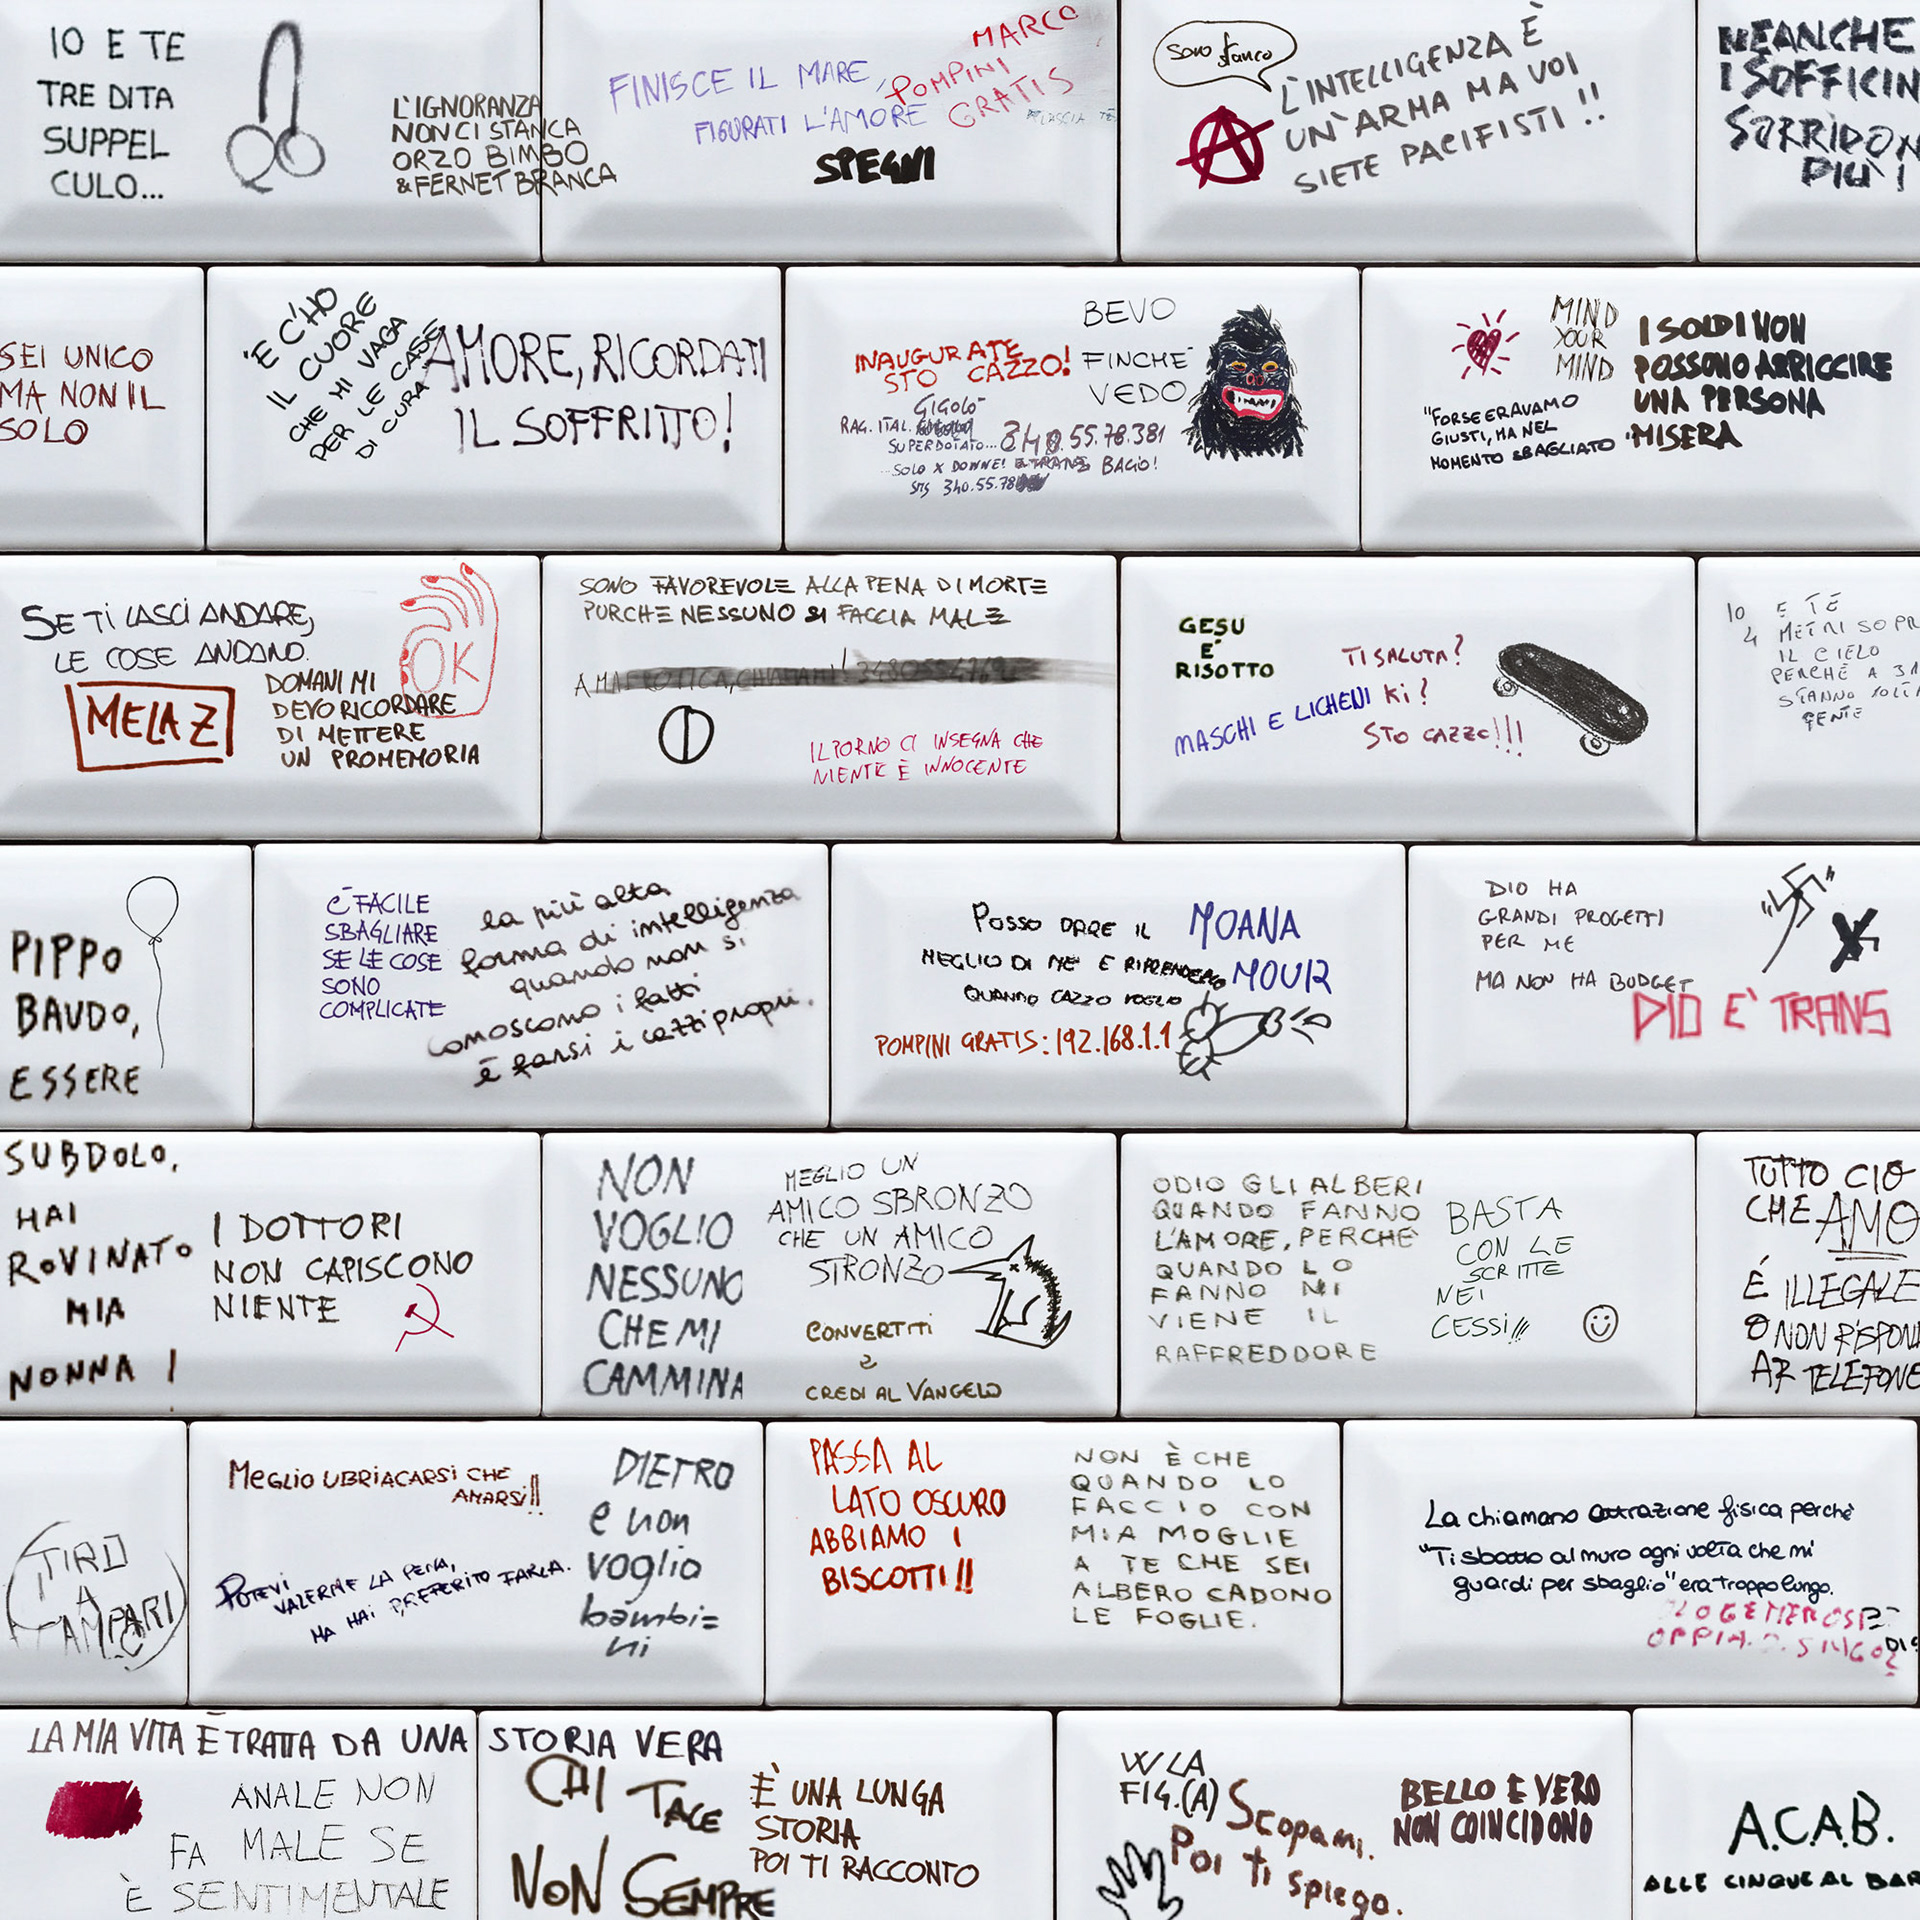 IO E TE
TRE DITA
SUPPEL
CULO...
L'IGNORANZA
NON CI STANCA
ORZO BIMBO
& FERNET BRANCA
FINISCE IL MARE,
FIGURATI L'AMORE
MARCO
POMPINI
GRATIS
SPEGNI
sono stanco
L'INTELLIGENZA È
UN'ARMA MA VOI
SIETE PACIFISTI!!
NEANCHE
I SOFFICIN
SORRIDON
PIÙ!
SEI UNICO
MA NON IL
SOLO
'E C'HO
IL CUORE
CHE MI VAGA
PER LE CASE
DI CURA
AMORE, RICORDATI
IL SOFFRITTO!
INAUGURATE
STO CAZZO!
BEVO
FINCHÉ
VEDO
GIGOLÒ
RAG. ITAL.
SUPERDOTATO... 340.55.78.381
...SOLO X DONNE! E TRANS BACIO!
SMS 340.55.78
MIND
YOUR
MIND
"FORSE ERAVAMO
GIUSTI, MA NEL
MOMENTO SBAGLIATO"
I SOLDI NON
POSSONO ARRICCIRE
UNA PERSONA
MISERA
SE TI LASCI ANDARE,
LE COSE ANDANO.
OK
MELA Z
DOMANI MI
DEVO RICORDARE
DI METTERE
UN PROMEMORIA
SONO FAVOREVOLE ALLA PENA DI MORTE
PURCHE NESSUNO SI FACCIA MALE
IL PORNO CI INSEGNA CHE
NIENTE È INNOCENTE
GESU
E'
RISOTTO
TI SALUTA?
MASCHI E LICHENI KI?
STO CAZZO!!!
IO E TE
4 METRI SOPR
IL CIELO
PERCHÈ A 3
STANNO SULL
GENTE
PIPPO
BAUDO,
ESSERE
SUBDOLO,
HAI
ROVINATO
MIA
NONNA!
È FACILE
SBAGLIARE
SE LE COSE
SONO
COMPLICATE
la più alta
forma di intelligenza
quando non si
conoscono i fatti
è farsi i cazzi propri.
POSSO DARE IL
MEGLIO DI ME E RIPRENDERLO
QUANDO CAZZO VOGLIO
MOANA
MOUIR
POMPINI GRATIS: 192.168.1.1
DIO HA
GRANDI PROGETTI
PER ME
MA NON HA BUDGET
DIO E' TRANS
I DOTTORI
NON CAPISCONO
NIENTE
NON
VOGLIO
NESSUNO
CHE MI
CAMMINA
DIETRO
e non
voglio
bambi=
ni
MEGLIO UN
AMICO SBRONZO
CHE UN AMICO
STRONZO
CONVERTITI
E
CREDI AL VANGELO
ODIO GLI ALBERI
QUANDO FANNO
L'AMORE, PERCHÈ
QUANDO LO
FANNO MI
VIENE IL
RAFFREDDORE
BASTA
CON LE
SCRITTE
NEI
CESSI!!!
TUTTO CIÒ
CHE AMO
É ILLEGALE
O NON RISPOND
AR TELEFONE
TIRO
A
CAMPARI
MEGLIO UBRIACARSI CHE
AMARSI!!
POTEVI
VALERNE LA PENA,
MA HAI PREFERITO FARLA.
PASSA AL
LATO OSCURO
ABBIAMO I
BISCOTTI!!
NON È CHE
QUANDO LO
FACCIO CON
MIA MOGLIE
A TE CHE SEI
ALBERO CADONO
LE FOGLIE.
La chiamano attrazione fisica perchè
"Ti sbatto al muro ogni volta che mi
guardi per sbaglio" era troppo lungo.
LA MIA VITA È TRATTA DA UNA STORIA VERA
ANALE NON
FA MALE SE
È SENTIMENTALE
CHI TACE
NON SEMPRE
È UNA LUNGA
STORIA
POI TI RACCONTO
W LA
FIG.(A)
Scopami.
Poi ti spiego.
BELLO E VERO
NON COINCIDONO
A.C.A.B.
ALLE CINQUE AL BAR